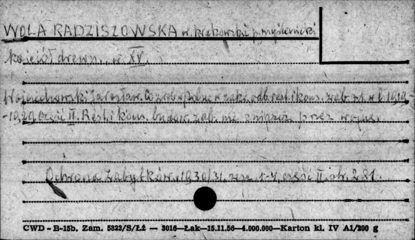 WOLA RADZISZOWSKA w. krakowski p. myślenicki
kościół drewn., w. XV.
Wojciechowski Jarosław, Co zrobiliśmy w zakr. odb. rest. i kons. zab. szt. w l. 1919-
-1929, część II. Rest. i kons. budow. zab. nie zniszcz. przez wojnę.
Ochrona Zabytków, 1930/31, zesz. 1-4, część II, str. 281.
CWD - B-15b. Zam. 5823/S/Łż — 3016—Łak—15.11.56—4.000.000—Karton kl. IV A1/200 g